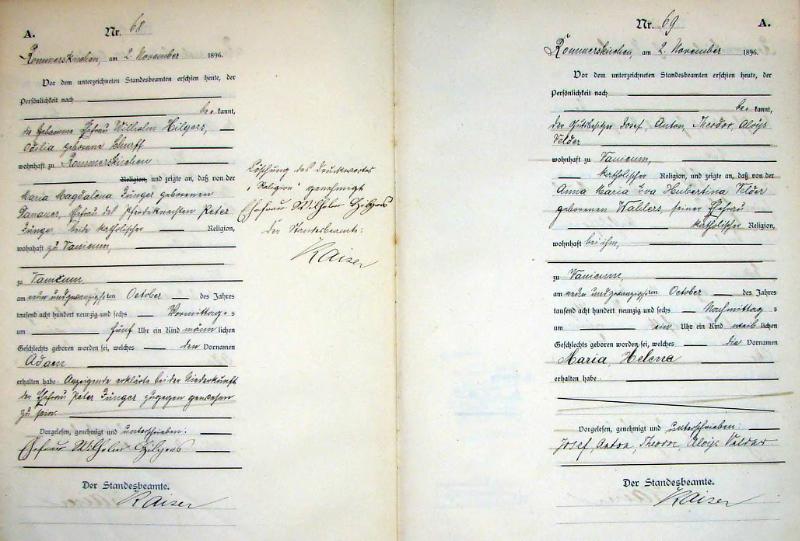 A.
Nr. 68
Rommerskirchen, am 2 November 1896.
Vor dem unterzeichneten Standesbeamten erschien heute, der
Persönlichkeit nach
be kannt,
die Hebamme Ehefrau Wilhelm Hilgers,
Odilia geborene
wohnhaft zu Rommerskirchen
Religion, und zeigte an, daß von der
Maria Magdalena Junger geborenen
Ehefrau des Pferdeknechten Peter
Junger beide katholischer Religion,
wohnhaft zu Vanicum,
zu Vanicum
am neun und zwanzigsten October des Jahres
tausend acht hundert neunzig und sechs Vormittags
um fünf Uhr ein Kind männlichen
Geschlechts geboren worden sei, welches den Vornamen
Adam
erhalten habe. Anzeigende erklärte bei der Niederkunft
der Ehefrau Peter Junger zugegen gewesen
zu sein.
Vorgelesen, genehmigt und unterschrieben:
Ehefrau Wilhelm Hilgers
Der Standesbeamte.
Kaiser
Löschung des Druckwortes
"Religion" genehmigt
Ehefrau Wilhelm Hilgers
Der Standesbeamte:
Kaiser
Nr. 69
A.
Rommerskirchen, am 2 November 1896.
Vor dem unterzeichneten Standesbeamten erschien heute, der
Persönlichkeit nach
be kannt,
der Gutsbesitzer Josef, Anton, Theodor, Aloys
Velder
wohnhaft zu Vanicum,
katholischer Religion, und zeigte an, daß von der
Anna Maria Eva Hubertina Velder
geborenen Wahlers, seiner Ehefrau
katholischer Religion,
wohnhaft bei ihm,
zu Vanicum,
am neun und zwanzigsten October des Jahres
tausend acht hundert neunzig und sechs Nachmittags
um ein Uhr ein Kind weiblichen
Geschlechts geboren worden sei, welches die Vornamen
Maria, Helena
erhalten habe
Vorgelesen, genehmigt und unterschrieben:
Josef Anton, Theodor, Aloys Velder
Der Standesbeamte.
Kaiser